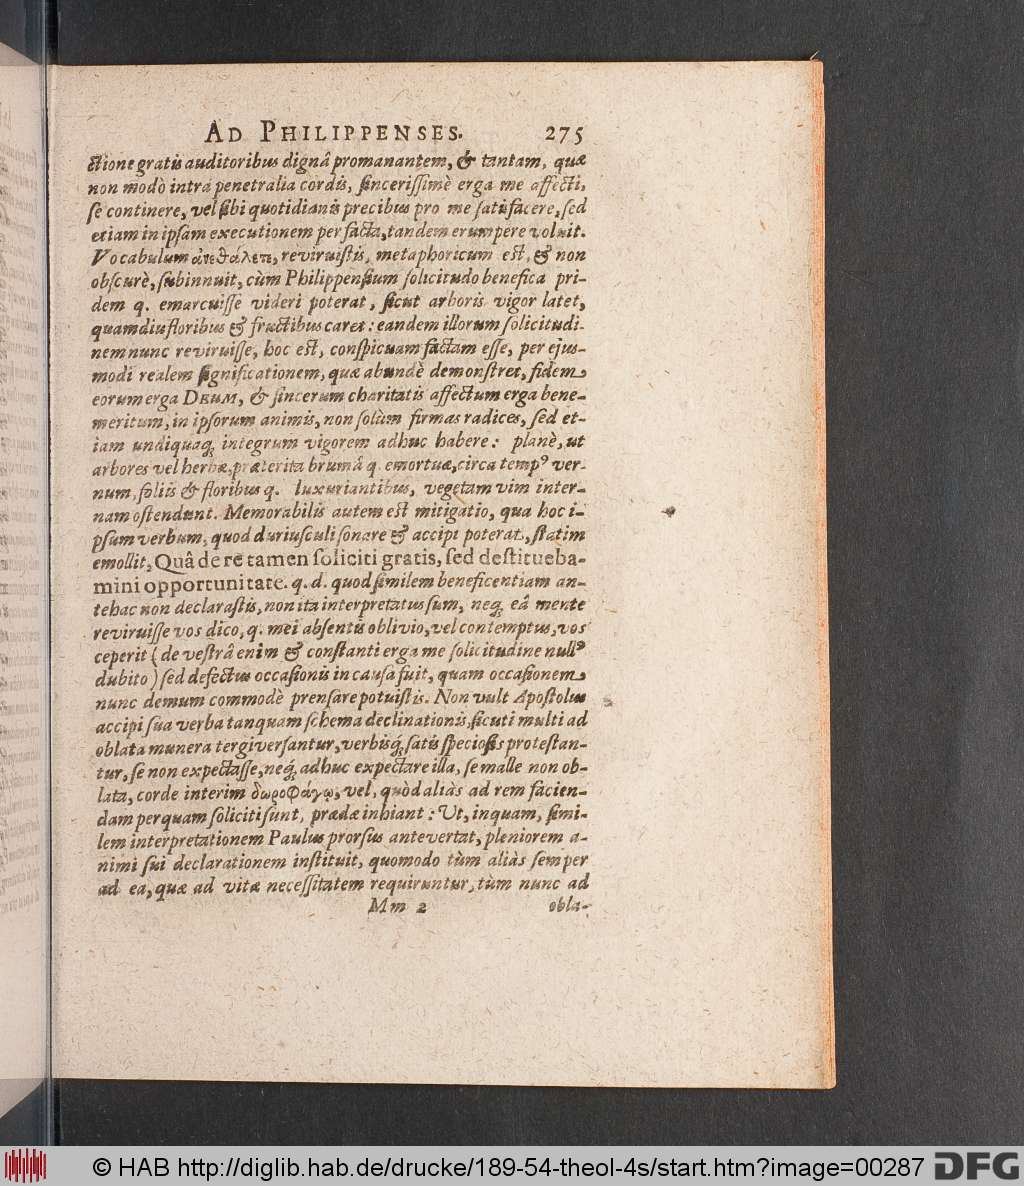 AD PHILIPPENSES. 275
ctione gratis auditoribus dignâ promanantem, & tantam, quæ
non modò intra penetralia cordis, sincerissimè erga me affecti,
se continere, vel sibi quotidianis precibus pro me satisfacere, sed
etiam in ipsam executionem per facta, tandem erumpere voluit.
Vocabulum ἀνεθάλετε, reviruistis, metaphoricum est, & non
obscurè, subinnuit, cùm Philippensium solicitudo benefica pri-
dem q. emarcuisse videri poterat, sicut arboris vigor latet,
quamdiu floribus & fructibus caret: eandem illorum solicitudi-
nem nunc reviruisse, hoc est, conspicuam factam esse, per ejus-
modi realem significationem, quæ abundè demonstret, fidem
eorum erga DEUM, & sincerum charitatis affectum erga bene-
meritum, in ipsorum animis, non solùm firmas radices, sed et-
iam undiquaq; integrum vigorem adhuc habere: planè, ut
arbores vel herbæ, præterita brumâ q. emortuæ, circa tempꝰ ver-
num, foliis & floribus q. luxuriantibus, vegetam vim inter-
nam ostendunt. Memorabilis autem est mitigatio, qua hoc i-
psum verbum, quod duriusculi sonare & accipi poterat, statim
emollit, Quâ de re tamen soliciti gratis, sed destitueba-
mini opportunitate. q. d. quod similem beneficentiam an-
tehac non declarastis, non ita interpretatus sum, neq; eâ mente
reviruisse vos dico, q. mei absentis oblivio, vel contemptus, vos
ceperit (de vestrâ enim & constanti erga me solicitudine nullꝰ
dubito) sed defectus occasionis in causa fuit, quam occasionem
nunc demum commodè prensare potuistis. Non vult Apostolus
accipi sua verba tanquam schema declinationis, sicuti multi ad
oblata munera tergiversantur, verbisq; satis speciosis protestan-
tur, se non expectasse, neq; adhuc expectare illa, se malle non ob-
lata, corde interim δωροφάγῳ, vel, quòd aliàs ad rem facien-
dam perquam soliciti sunt, prædæ inhiant: Ut, inquam, simi-
lem interpretationem Paulus prorsus antevertat, pleniorem a-
nimi sui declarationem instituit, quomodo tùm aliàs semper
ad ea, quæ ad vitæ necessitatem requiruntur, tùm nunc ad
Mm 2 obla-
© HAB http://diglib.hab.de/drucke/189-54-theol-4s/start.htm?image=00287 DFG